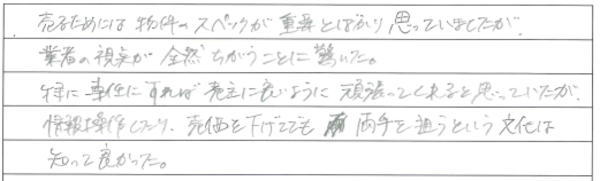 売るためには物件のスペックが重要とばかり思っていましたが、
業者の視点が全然ちがうことに驚いた。
特に専任にすれば売主に良いように頑張ってくれると思っていたが、
情報操作したり、売価を下げてでも両手を狙うという文化は
知って良かった。